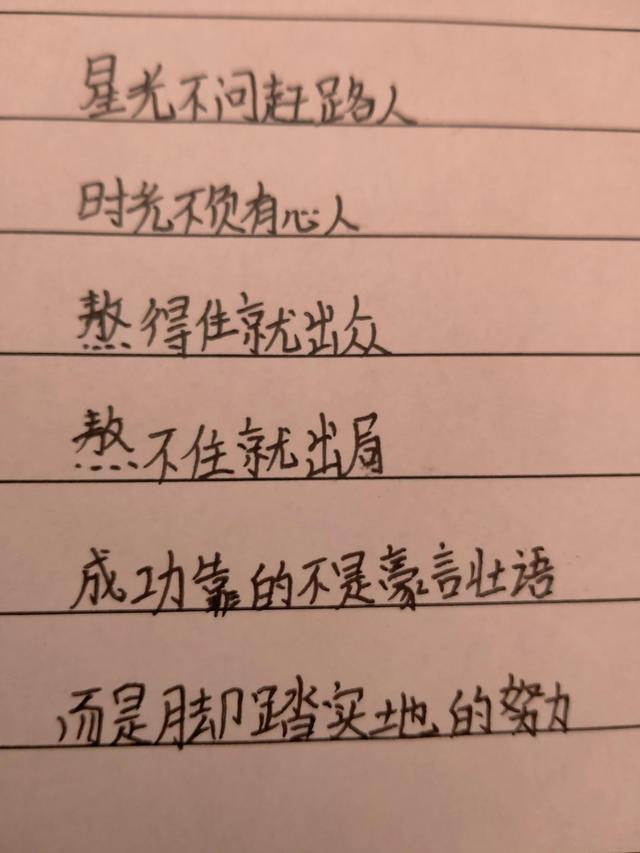 星光不问赶路人
时光不负有心人
熬得住就出众
熬不住就出局
成功靠的不是豪言壮语
而是脚踏实地的努力